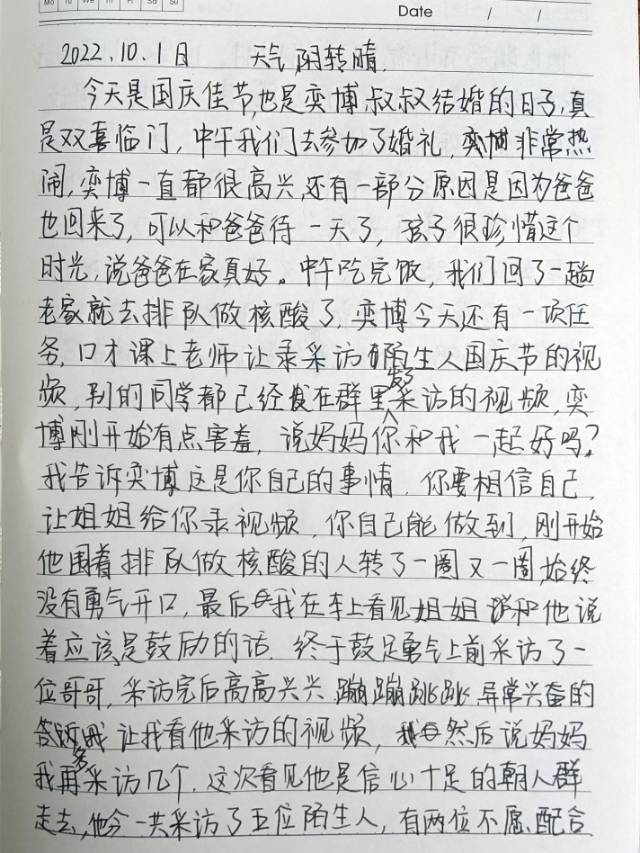 Mo Tu We Th Fr Sa Su
Date / /
2022.10.1日 天气阴转晴.
今天是国庆佳节,也是奕博叔叔结婚的日子,真
是双喜临门,中午我们去参加了婚礼,奕博非常热
闹,奕博一直都很高兴,还有一部分原因是因为爸爸
也回来了,可以和爸爸待一天了,孩子很珍惜这个
时光,说爸爸在家真好。中午吃完饭,我们回了一趟
老家就去排队做核酸了,奕博今天还有一项任
务,口才课上老师让录采访陌生人国庆节的视
频,别的同学都已经发在群里发了采访的视频,奕
博刚开始有点害羞,说妈妈你和我一起好吗?
我告诉奕博这是你自己的事情,你要相信自己,
让姐姐给你录视频,你自己能做到,刚开始
他围着排队做核酸的人转了一圈又一圈,始终
没有勇气开口,最后我在车上看见姐姐和他说
着应该是鼓励的话.终于鼓足勇气上前采访了一
位哥哥,采访完后高高兴兴蹦蹦跳跳,异常兴奋的
让我看他采访的视频,然后说妈妈
我再多采访几个.这次看见他是信心十足的朝人群
走去,他今一共采访了五位陌生人,有两位不愿配合